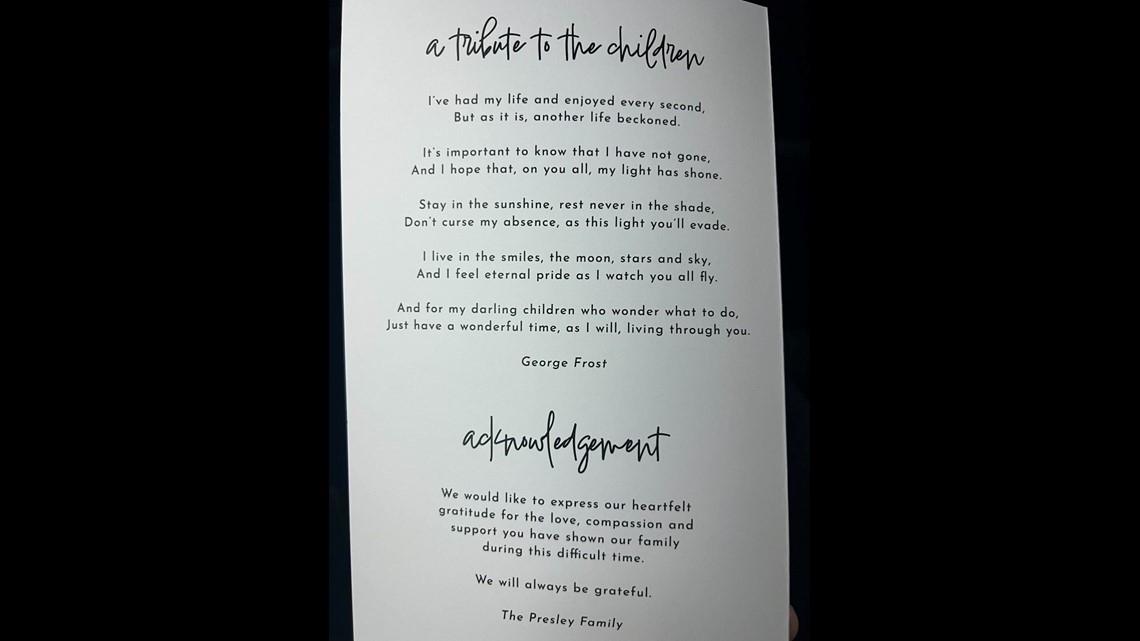 a tribute to the children
I've had my life and enjoyed every second,
But as it is, another life beckoned.
It's important to know that I have not gone,
And I hope that, on you all, my light has shone.
Stay in the sunshine, rest never in the shade,
Don't curse my absence, as this light you'll evade.
I live in the smiles, the moon, stars and sky,
And I feel eternal pride as I watch you all fly.
And for my darling children who wonder what to do,
Just have a wonderful time, as I will, living through you.
George Frost
acknowledgement
We would like to express our heartfelt
gratitude for the love, compassion and
support you have shown our family
during this difficult time.
We will always be grateful.
The Presley Family